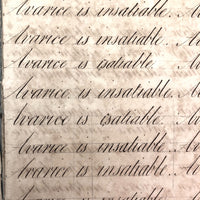 Avarice is insatiable.. A
Avarice is insatiable.. A
Avarice is isatiable..
Avarice is insatiable.. A
Avarice is isatiable.. Av
Avarice is insatiable.. Av
Avarice is insatiable.. Av
Avarice is insatiable.